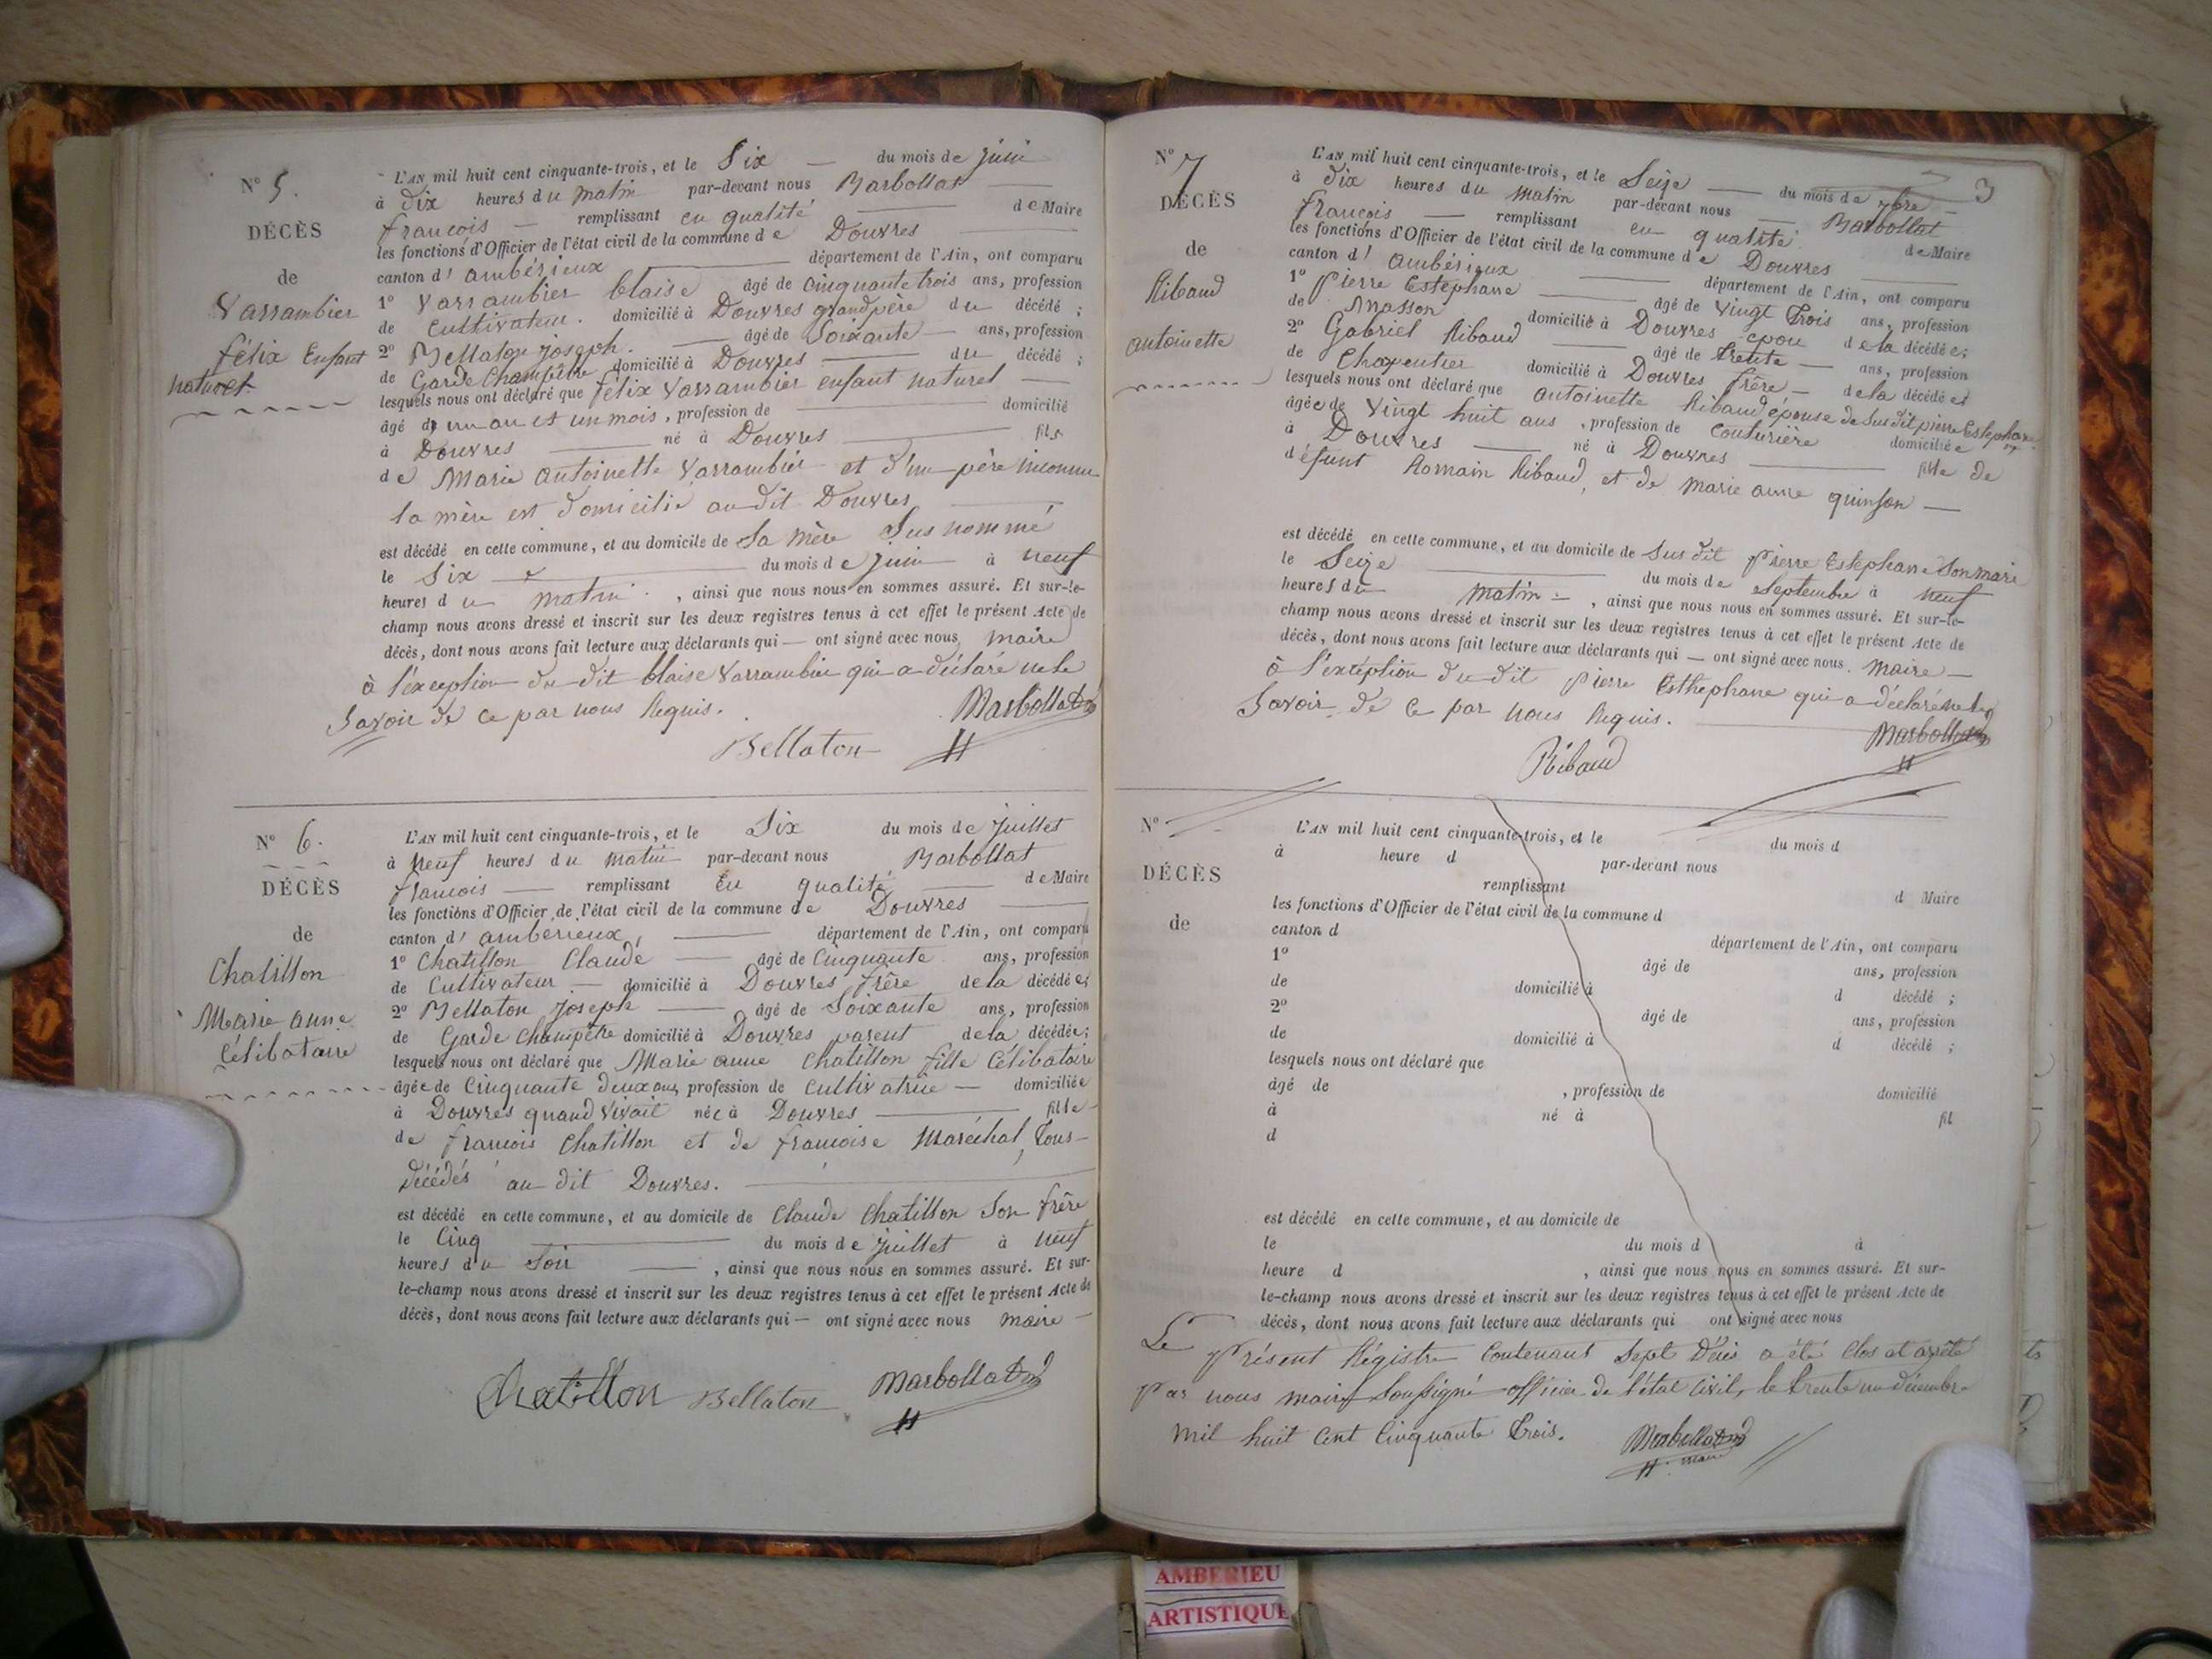 N° 5.
DÉCÈS
de
Varrambier
félix Enfant
naturel
L'AN mil huit cent cinquante-trois, et le Six du mois de juin
à Dix heures du matin par-devant nous Marbollat
françois remplissant en qualité de Maire
les fonctions d'Officier de l'état civil de la commune de Douvres
canton d' ambérieux département de l'Ain, ont comparu
1° Varrambier blaise âgé de cinquante trois ans, profession
de Cultivateur. domicilié à Douvres grand père du décédé ;
2° Bellaton joseph. âgé de Soixante ans, profession
de Garde Champêtre domicilié à Douvres du décédé ;
lesquels nous ont déclaré que félix Varrambier enfant naturel
âgé d'un an et un mois, profession de domicilié
à Douvres né à Douvres fils
de Marie antoinette Varrambier et d'un père inconnu
la mère est domicilié au dit Douvres
est décédé en cette commune, et au domicile de Sa mère Sus nommé
le Six du mois de juin à neuf
heures du matin, ainsi que nous nous en sommes assuré. Et sur-le-
champ nous avons dressé et inscrit sur les deux registres tenus à cet effet le présent Acte de
décès, dont nous avons fait lecture aux déclarants qui — ont signé avec nous maire
à l'exception du dit blaise Varrambier qui a déclaré ne le
Savoir de ce par nous Requis.
Marbollat
Bellaton
N° 6.
DÉCÈS
de
Chatillon
Marie anne
Célibataire
L'AN mil huit cent cinquante-trois, et le Six du mois de juillet
à neuf heures du matin par-devant nous Marbollat
francois remplissant en qualité de Maire
les fonctions d'Officier de l'état civil de la commune de Douvres
canton d' ambérieux, département de l'Ain, ont comparu
1° Chatillon Claude âgé de Cinquante ans, profession
de Cultivateur domicilié à Douvres frère de la décédée;
2° Bellaton joseph âgé de Soixante ans, profession
de Garde Champêtre domicilié à Douvres parent de la décédée;
lesquels nous ont déclaré que Marie anne Chatillon fille Célibataire
âgée de Cinquante deux ans, profession de Cultivatrice domiciliée
à Douvres quand vivait née à Douvres fille
de francois Chatillon et de francoise Maréchal, Tous
décédés au dit Douvres.
est décédé en cette commune, et au domicile de Claude Chatillon Son frère
le Cinq du mois de juillet à neuf
heures du Soir, ainsi que nous nous en sommes assuré. Et sur-
le-champ nous avons dressé et inscrit sur les deux registres tenus à cet effet le présent Acte de
décès, dont nous avons fait lecture aux déclarants qui — ont signé avec nous maire
Chatillon Bellaton Marbollat
3
N° 7
DÉCÈS
de
Ribaud
antoinette
L'AN mil huit cent cinquante-trois, et le Seize du mois de 7bre
à Dix heures du matin par-devant nous Marbollat
francois remplissant en qualité de Maire
les fonctions d'Officier de l'état civil de la commune de Douvres
canton d' ambérieux département de l'Ain, ont comparu
1° Pierre Estephane âgé de Vingt Trois ans, profession
de Masson domicilié à Douvres epou de la décédée;
2° Gabriel Ribaud âgé de trente ans, profession
de Charpentier domicilié à Douvres frère de la décédée
lesquels nous ont déclaré que antoinette Ribaud épouse de Sus dit pierre Estephane
âgée de Vingt huit ans, profession de Couturière domiciliée
à Douvres né à Douvres fille de
défunt Romain Ribaud, et de Marie anne quinson
est décédé en cette commune, et au domicile de Sus dit Pierre Estephane Son mari
le Seize du mois de Septembre à neuf
heures du matin, ainsi que nous nous en sommes assuré. Et sur-le-
champ nous avons dressé et inscrit sur les deux registres tenus à cet effet le présent Acte de
décès, dont nous avons fait lecture aux déclarants qui — ont signé avec nous. Maire
à l'exception du dit Pierre Esthephane qui a déclaré ne le
Savoir de ce par nous Requis.
Marbollat
Ribaud
N°
DÉCÈS
de
L'AN mil huit cent cinquante-trois, et le du mois d
à heure d par-devant nous
remplissant d Maire
les fonctions d'Officier de l'état civil de la commune d
canton d département de l'Ain, ont comparu
1° âgé de ans, profession
de domicilié à d décédé ;
2° âgé de ans, profession
de domicilié à d décédé ;
lesquels nous ont déclaré que
âgé de , profession de domicilié
à né à fil
d
est décédé en cette commune, et au domicile de
le du mois d à
heure d , ainsi que nous nous en sommes assuré. Et sur-
le-champ nous avons dressé et inscrit sur les deux registres tenus à cet effet le présent Acte de
décès, dont nous avons fait lecture aux déclarants qui ont signé avec nous
Le Présent Régistre Contenant Sept Décès a été Clos et arrêté
Par nous maire Soussigné officier de l'état Civil, le trente un décembre
mil huit Cent Cinquante Trois.
Marbollat
maire
AMBERIEU
ARTISTIQUE